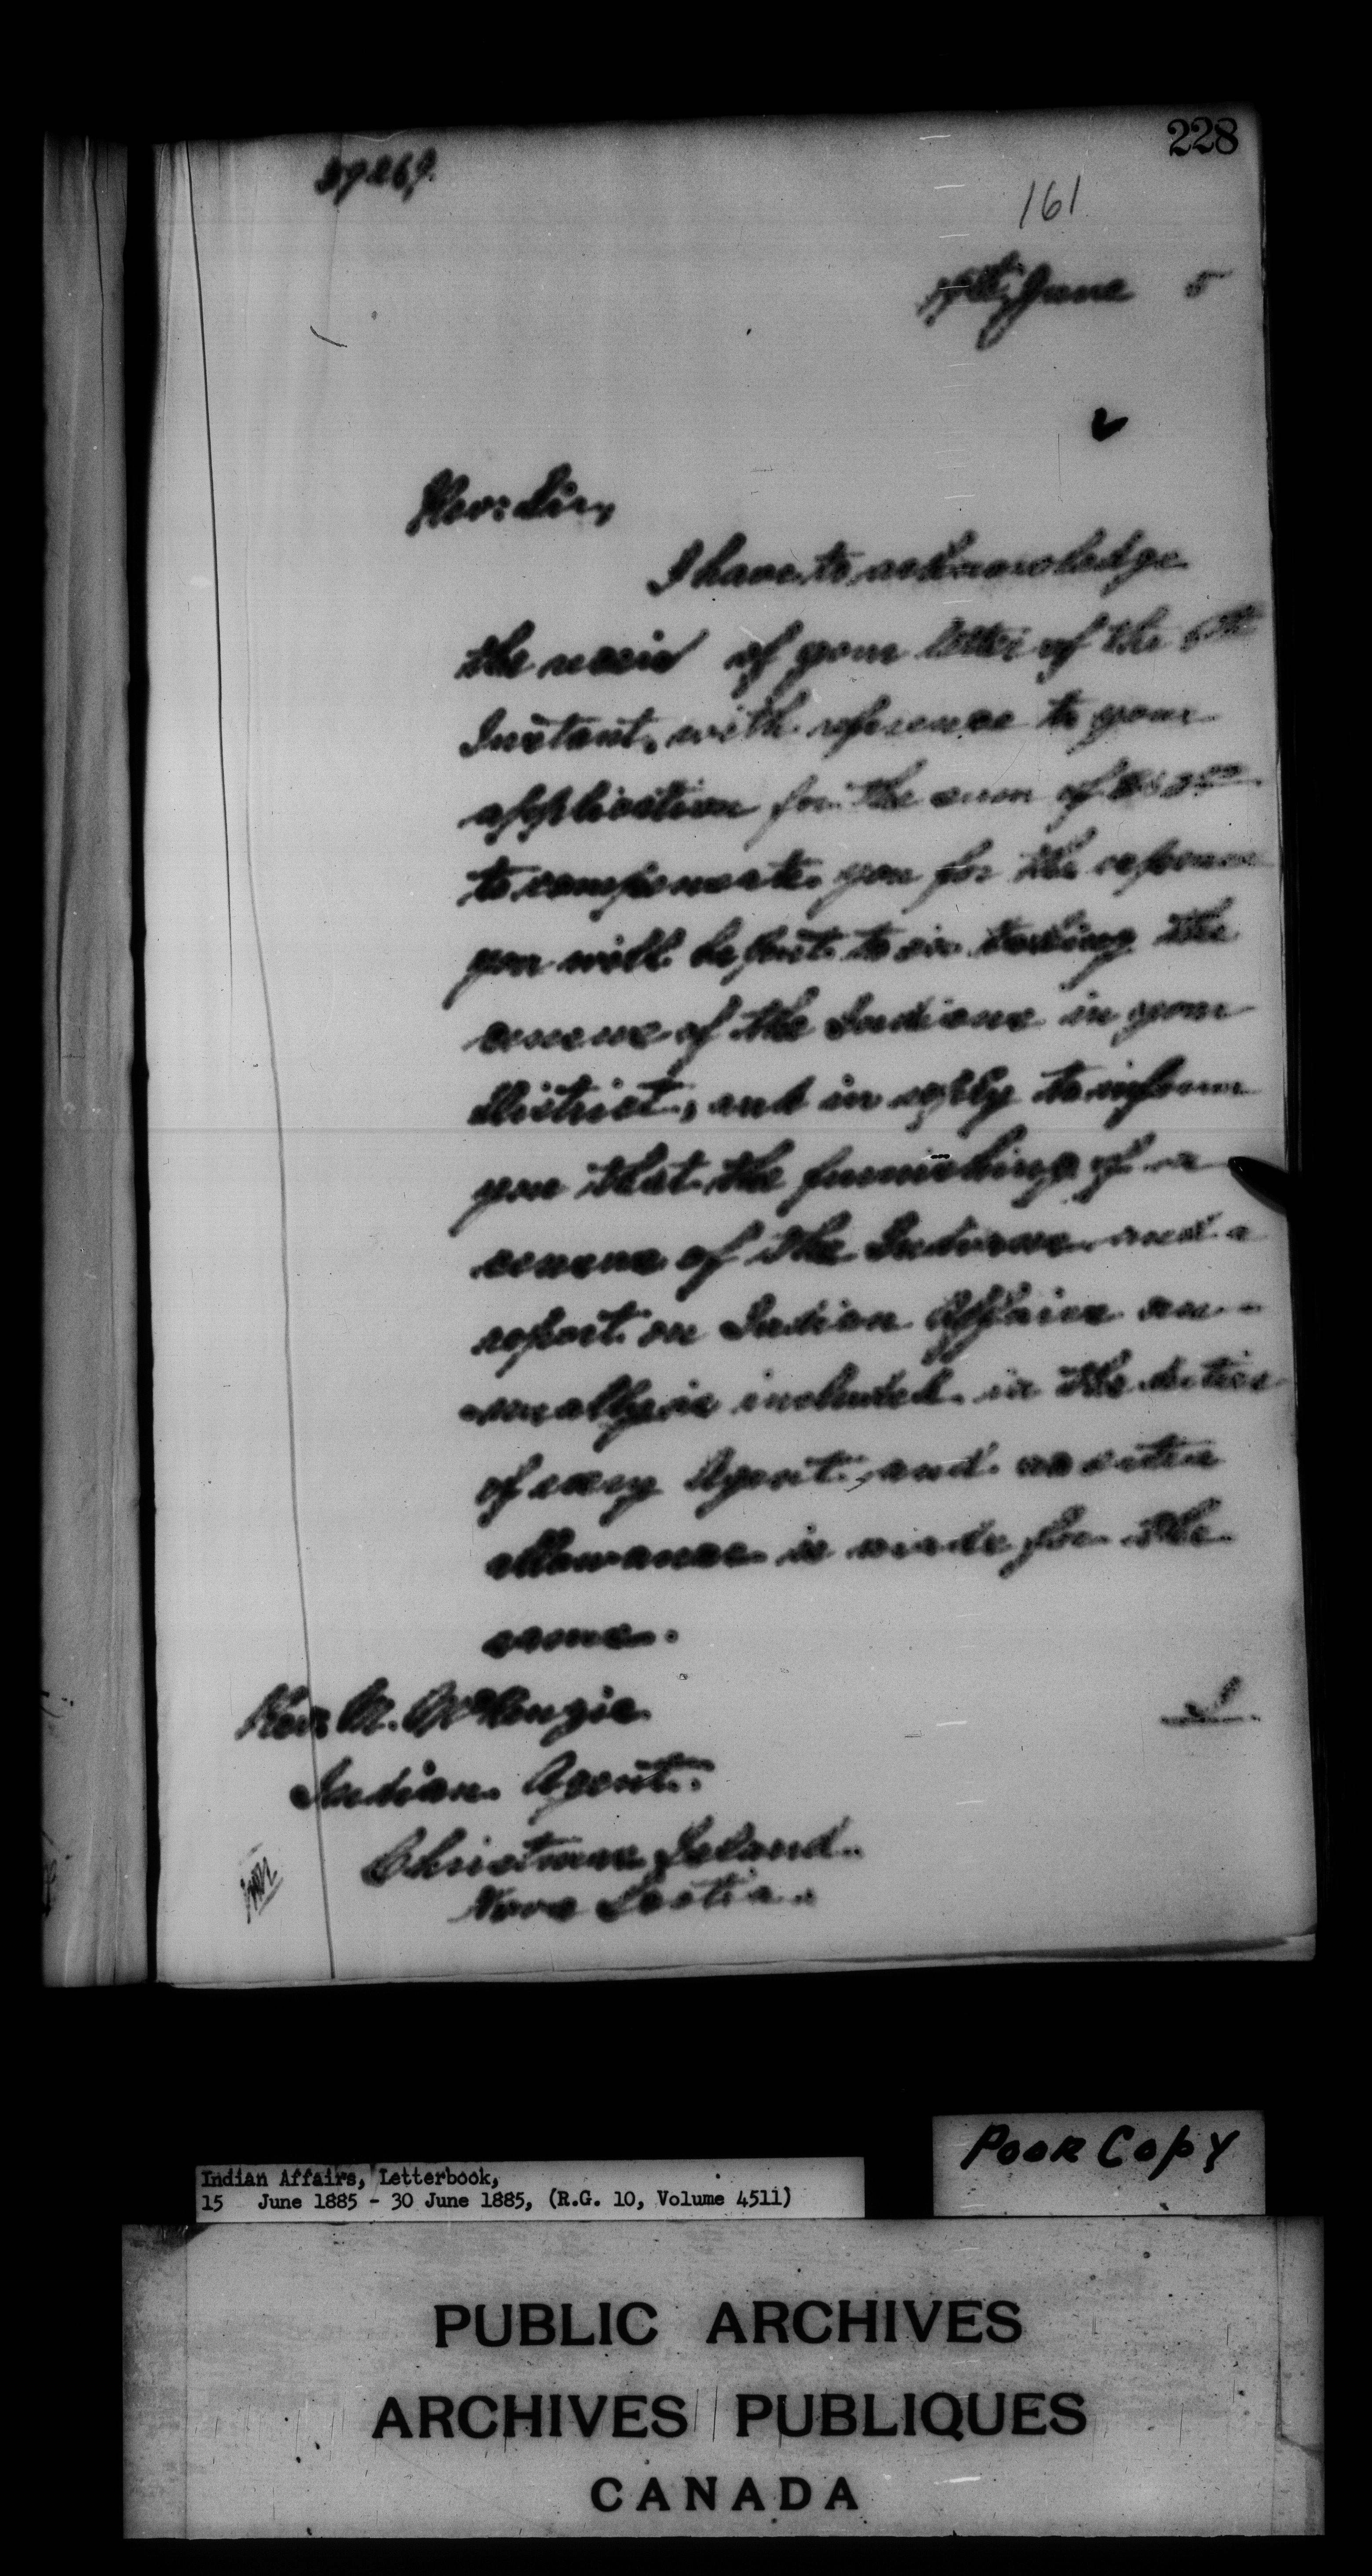 228
161
June 5
Rev: Sir,
I have to acknowledge
the receit of your letter of the 6th
Instant, with reference to your
application for the sum of
to compensate you for the expense
you will be put to in taking the
census of the Indians in your
District, and in reply to inform
you that the furnishing of a
census of the Indians and a
report on Indian Affairs an-
nually is included in the duties
of every Agent and no extra
allowance is made for the
same.
Rev: M. McKenzie
Indian Agent.
Christmas Island.
Nova Scotia.
Poor Copy
Indian Affairs, Letterbook,
15 June 1885 - 30 June 1885, (R.G. 10, Volume 4511)
PUBLIC ARCHIVES
ARCHIVES PUBLIQUES
CANADA